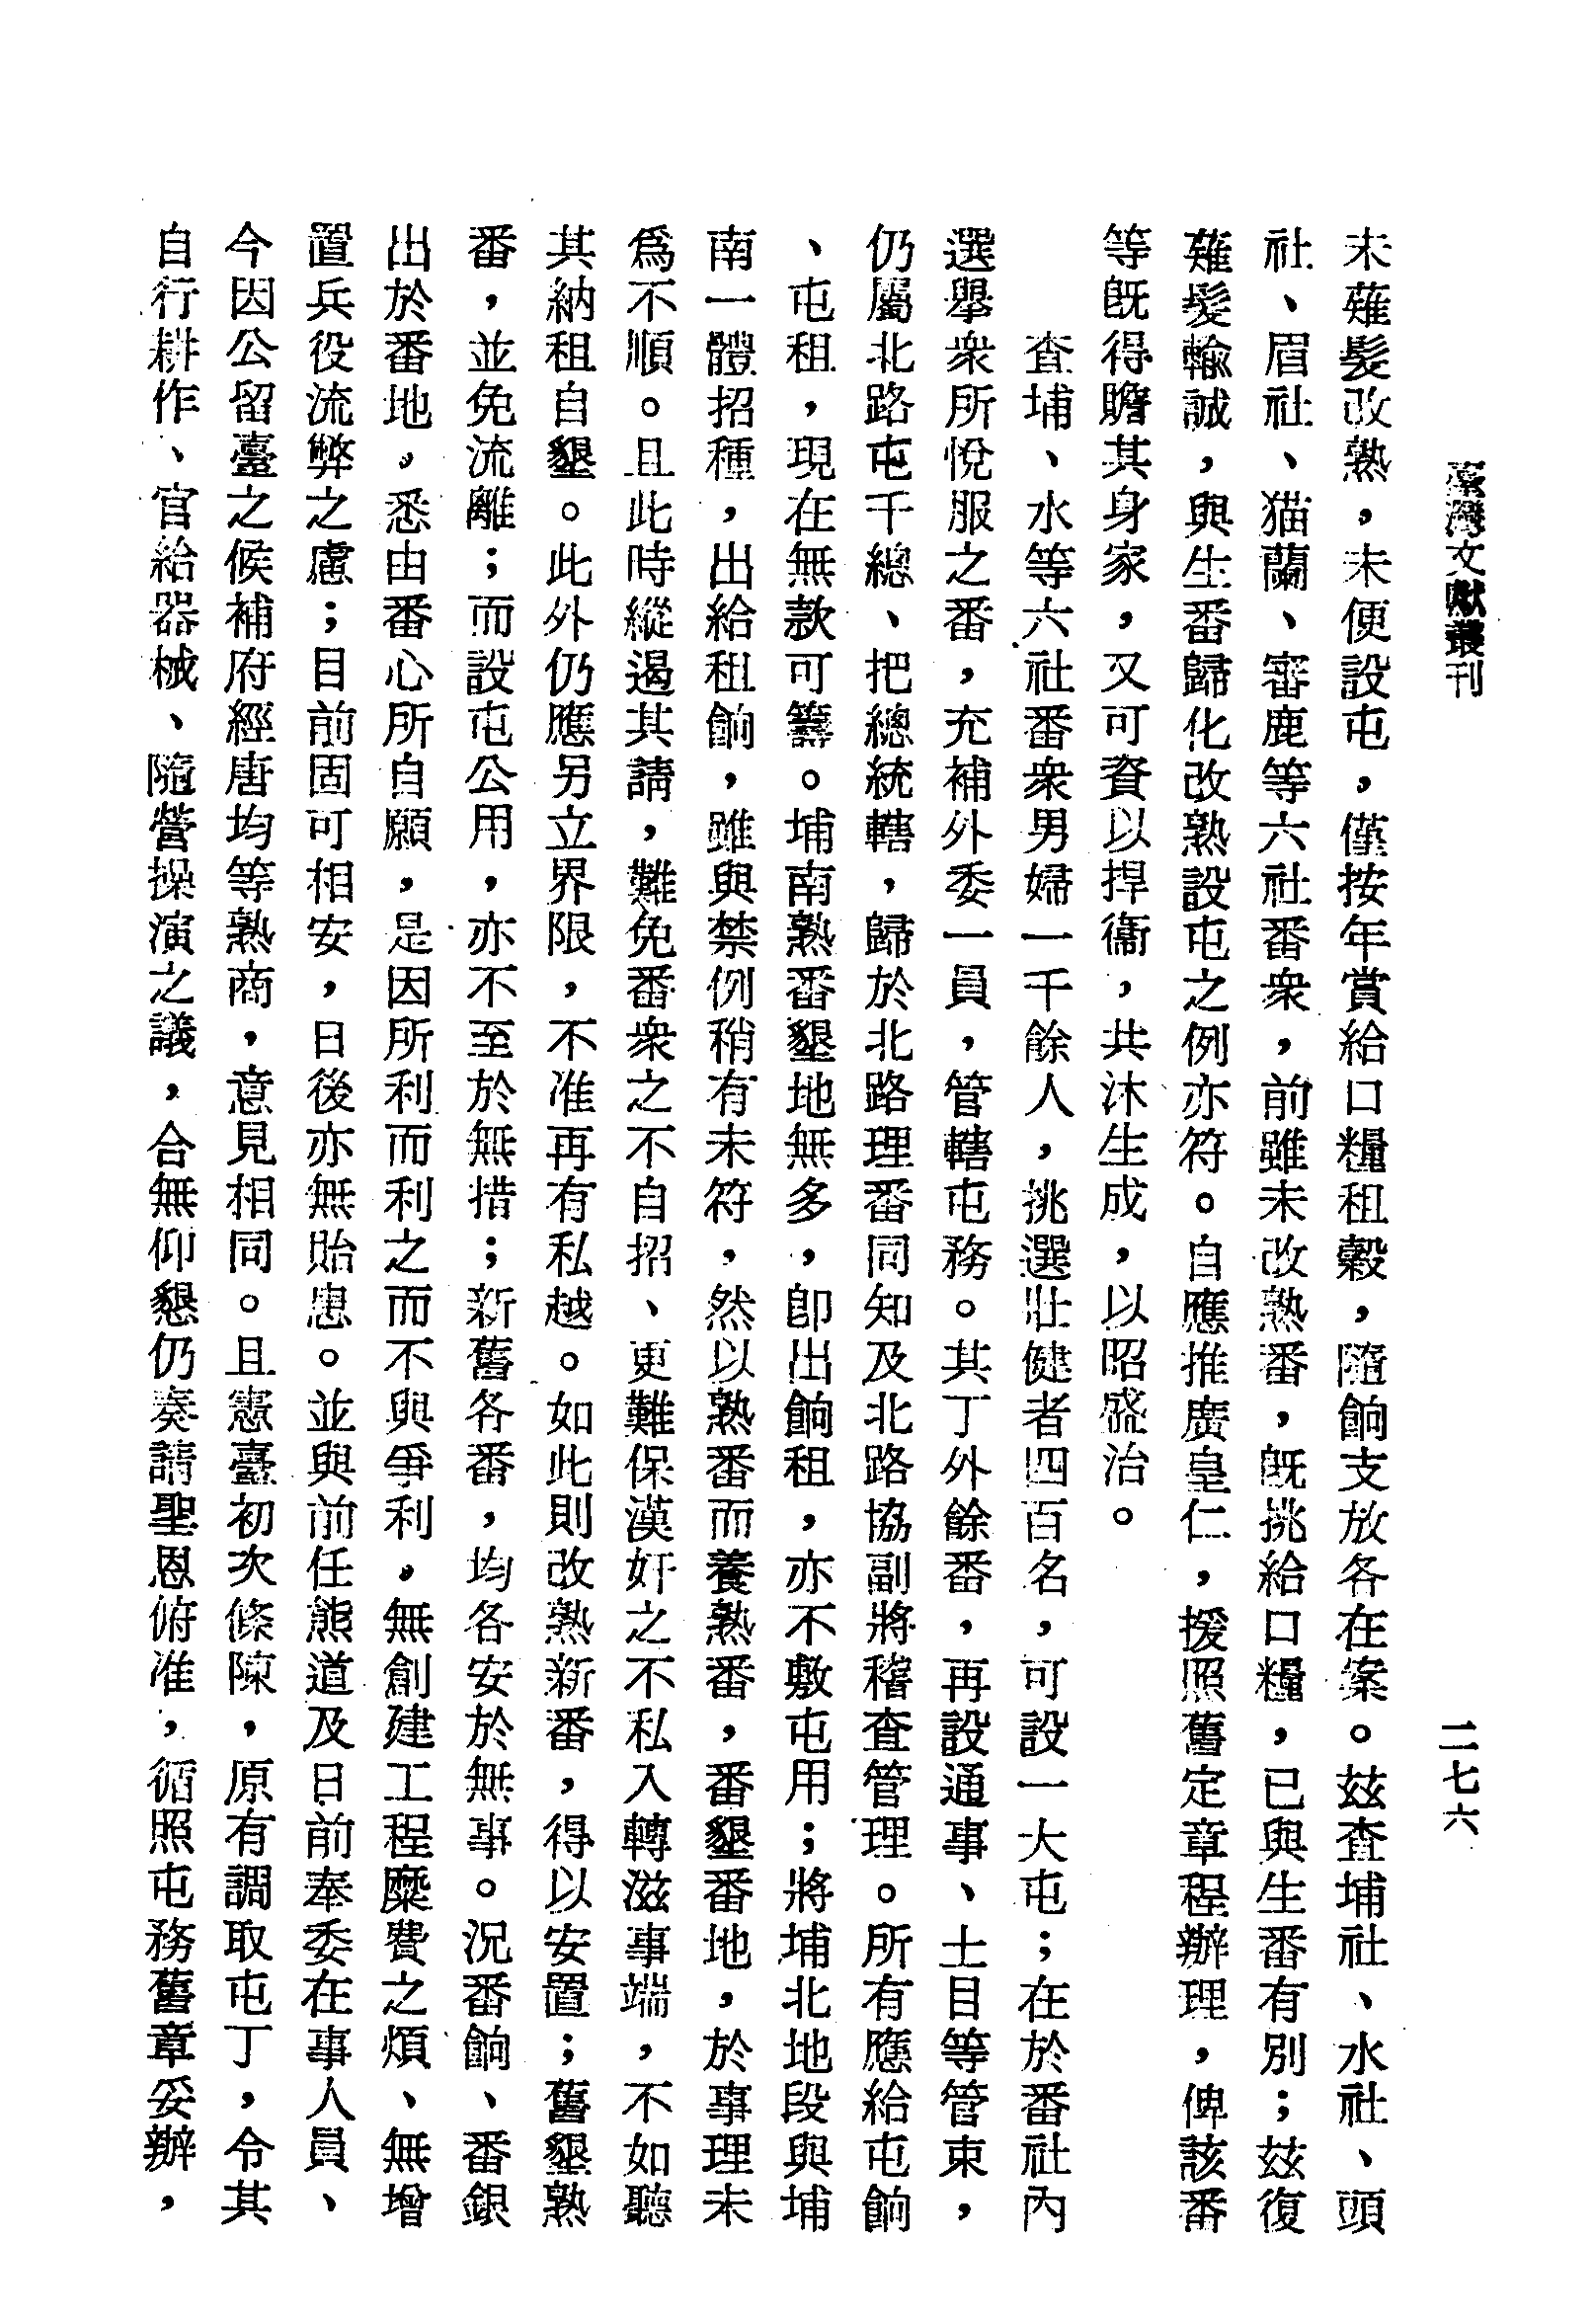 臺灣文獻叢刊
二七六
未薙髮改熟，未便設屯，僅按年賞給口糧租穀，隨餉支放各在案。玆查埔社、水社、頭
社、眉社、猫蘭、審鹿等六社番衆，前雖未改熟番，旣挑給口糧，已與生番有別；玆復
薙髮輸誠，與生番歸化改熟設屯之例亦符。自應推廣皇仁，援照舊定章程辦理，俾該番
等旣得贍其身家，又可資以捍衞，共沐生成，以昭盛治。
查埔、水等六社番衆男婦一千餘人，挑選壯健者四百名，可設一大屯；在於番社內
選舉衆所悅服之番，充補外委一員，管轄屯務。其丁外餘番，再設通事、土目等管束，
仍屬北路屯千總、把總統轄，歸於北路理番同知及北路協副將稽查管理。所有應給屯餉
、屯租，現在無款可籌。埔南熟番墾地無多，卽出餉租，亦不敷屯用；將埔北地段與埔
南一體招種，出給租餉，雖與禁例稍有未符，然以熟番而養熟番，番墾番地，於事理未
爲不順。且此時縱遏其請，難免番衆之不自招、更難保漢奸之不私入轉滋事端，不如聽
其納租自墾。此外仍應另立界限，不准再有私越。如此則改熟新番，得以安置；舊墾熟
番，並免流離；而設屯公用，亦不至於無措；新舊各番，均各安於無事。況番餉、番銀
出於番地，悉由番心所自願，是因所利而利之而不與爭利，無創建工程糜費之煩、無增
置兵役流弊之慮；目前固可相安，日後亦無貽患。並與前任熊道及日前奉委在事人員、
今因公留臺之候補府經唐均等熟商，意見相同。且憲臺初次條陳，原有調取屯丁，令其
自行耕作、官給器械、隨營操演之議，合無仰懇仍奏請聖恩俯准，循照屯務舊章妥辦，